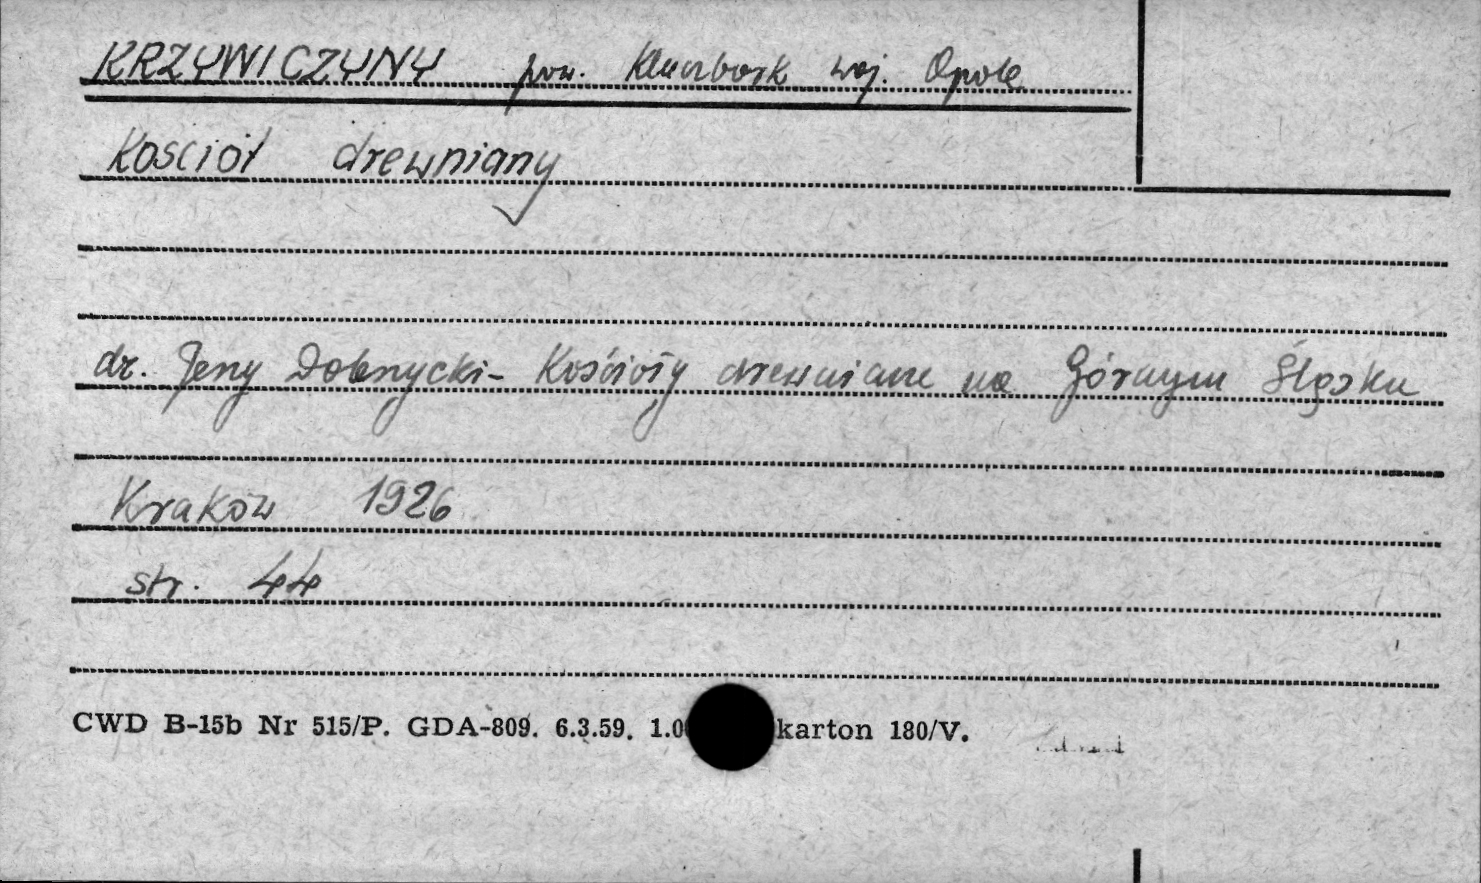 KRZYWICZYNY pow. Kluczbork woj. Opole
Kościół drewniany
dr. Jerzy Dobrzycki - Kościoły drewniane na Górnym Śląsku
Kraków 1926
str. 44
CWD B-15b Nr 515/P. GDA-809. 6.3.59. karton 180/V.